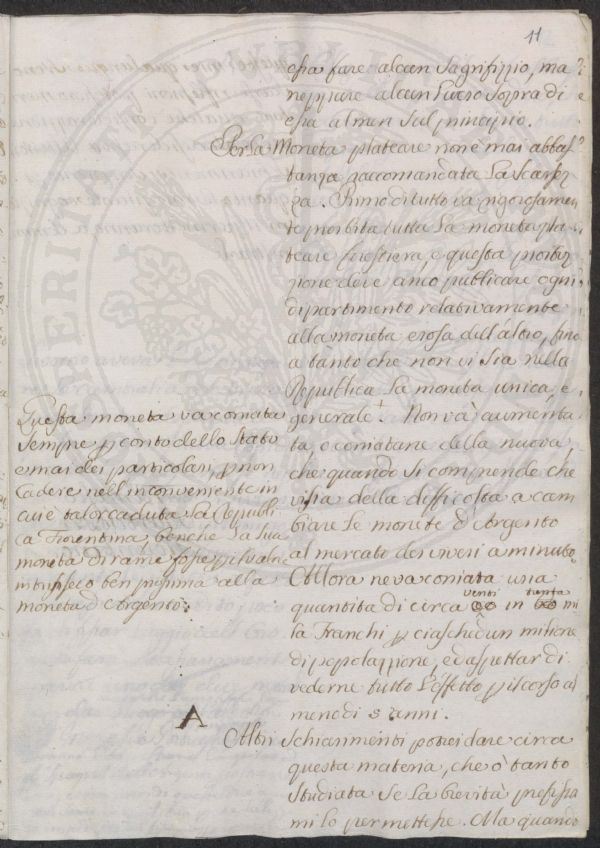 11
essa fare alcun sagrifizzio, ma
neggiare alcun lucro sopra di
essa almen sul principio.
Per la Moneta plateare non è mai abbas
tanza raccomandata la scarsez
za. Primo di tutto va rigorosamen
te proibita tutta la moneta pla
teare forestiera, e questa proibiz
zione deve anco publicare ogni
dipartimento relativamente
alla moneta erosa dell'altro, fino
a tanto che non vi sia nella
Republica la moneta unica, e
generale +. Non và aumenta
ta, e coniatane della nuova,
che quando si comprende che
vi sia della difficoltà a cam
biare le monete d'Argento
al mercato dei viveri a minuto.
Allora ne va coniata una
quantità di circa venti in trenta mi
la Franchi p ciaschedun milione
di popolazzione, ed aspettar di
vederne tutto l'effetto p il corso al
meno di 5 anni.
Questa moneta va coniata
sempre p conto dello Stato
e mai dei particolari, p non
cadere nell'inconveniente in
cui è talor caduta la Republi
ca Fiorentina, benche la sua
moneta di rame fosse p il valore
intrinseco ben prossima alla
moneta d'Argento.
A
Altri schiarimenti potrei dare circa
questa materia, che ò tanto
studiata se la brevità prefissa
mi lo permettesse. Ma quando